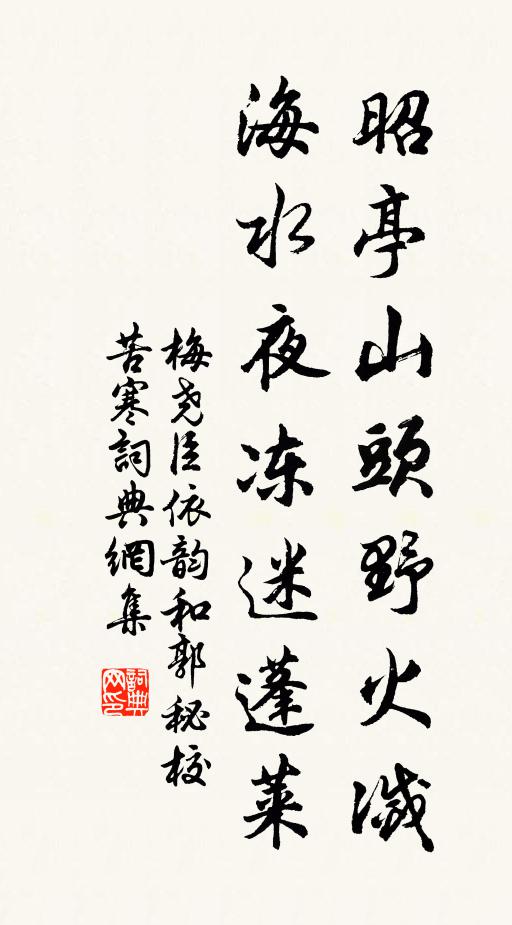 昭亭山頭野火滅
海水夜冻迷蓬萊
梅尧臣依韵和郭秘校
苦寒詞典網集
詞典网印